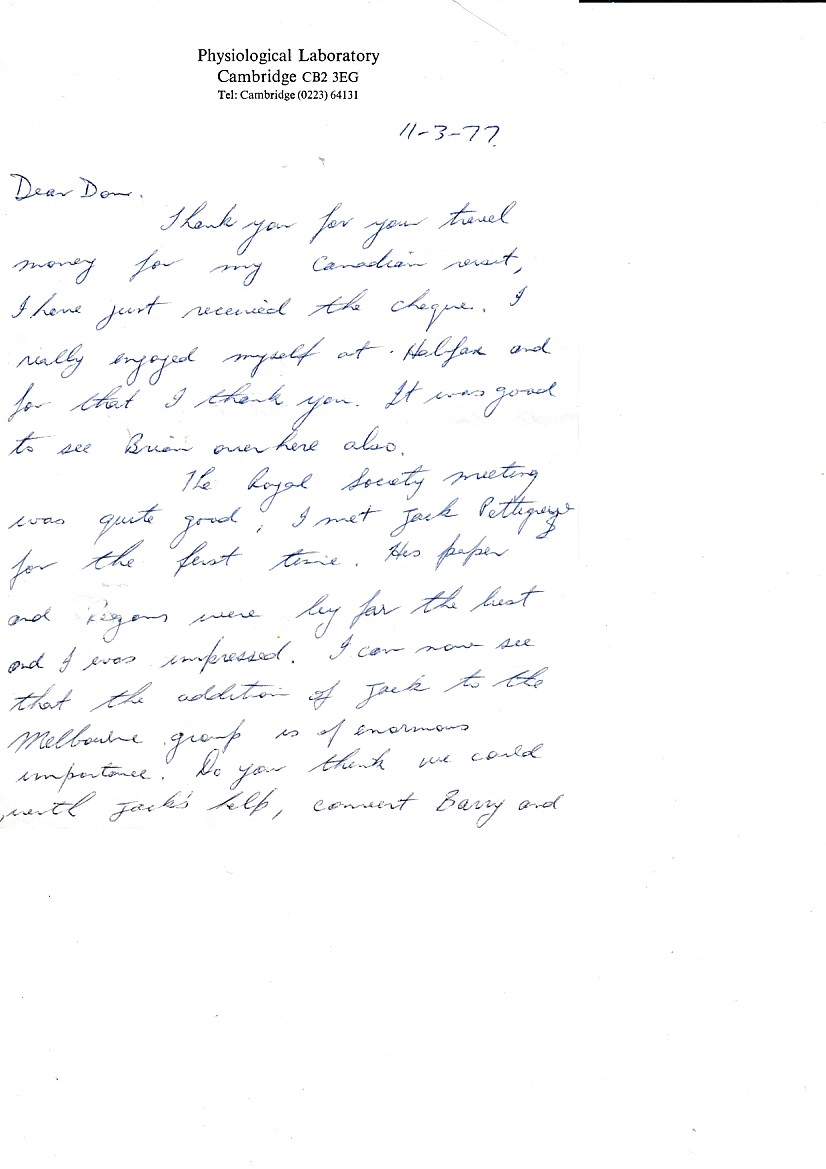 Physiological Laboratory
Cambridge CB2 3EG
Tel: Cambridge (0223) 64131
11-3-77.
Dear Don.
Thank you for your travel
money for my Canadian visit,
I have just received the cheque. I
really enjoyed myself at Halifax and
for that I thank you. It was good
to see Brian over here also.
The Royal Society meeting
was quite good, I met Jack Pettigrew
for the first time. His paper
and Regans were by far the best
and I was impressed. I can now see
that the addition of Jack to the
Melbourne group is of enormous
importance. Do you think we could
with Jack's help, convert Barry and